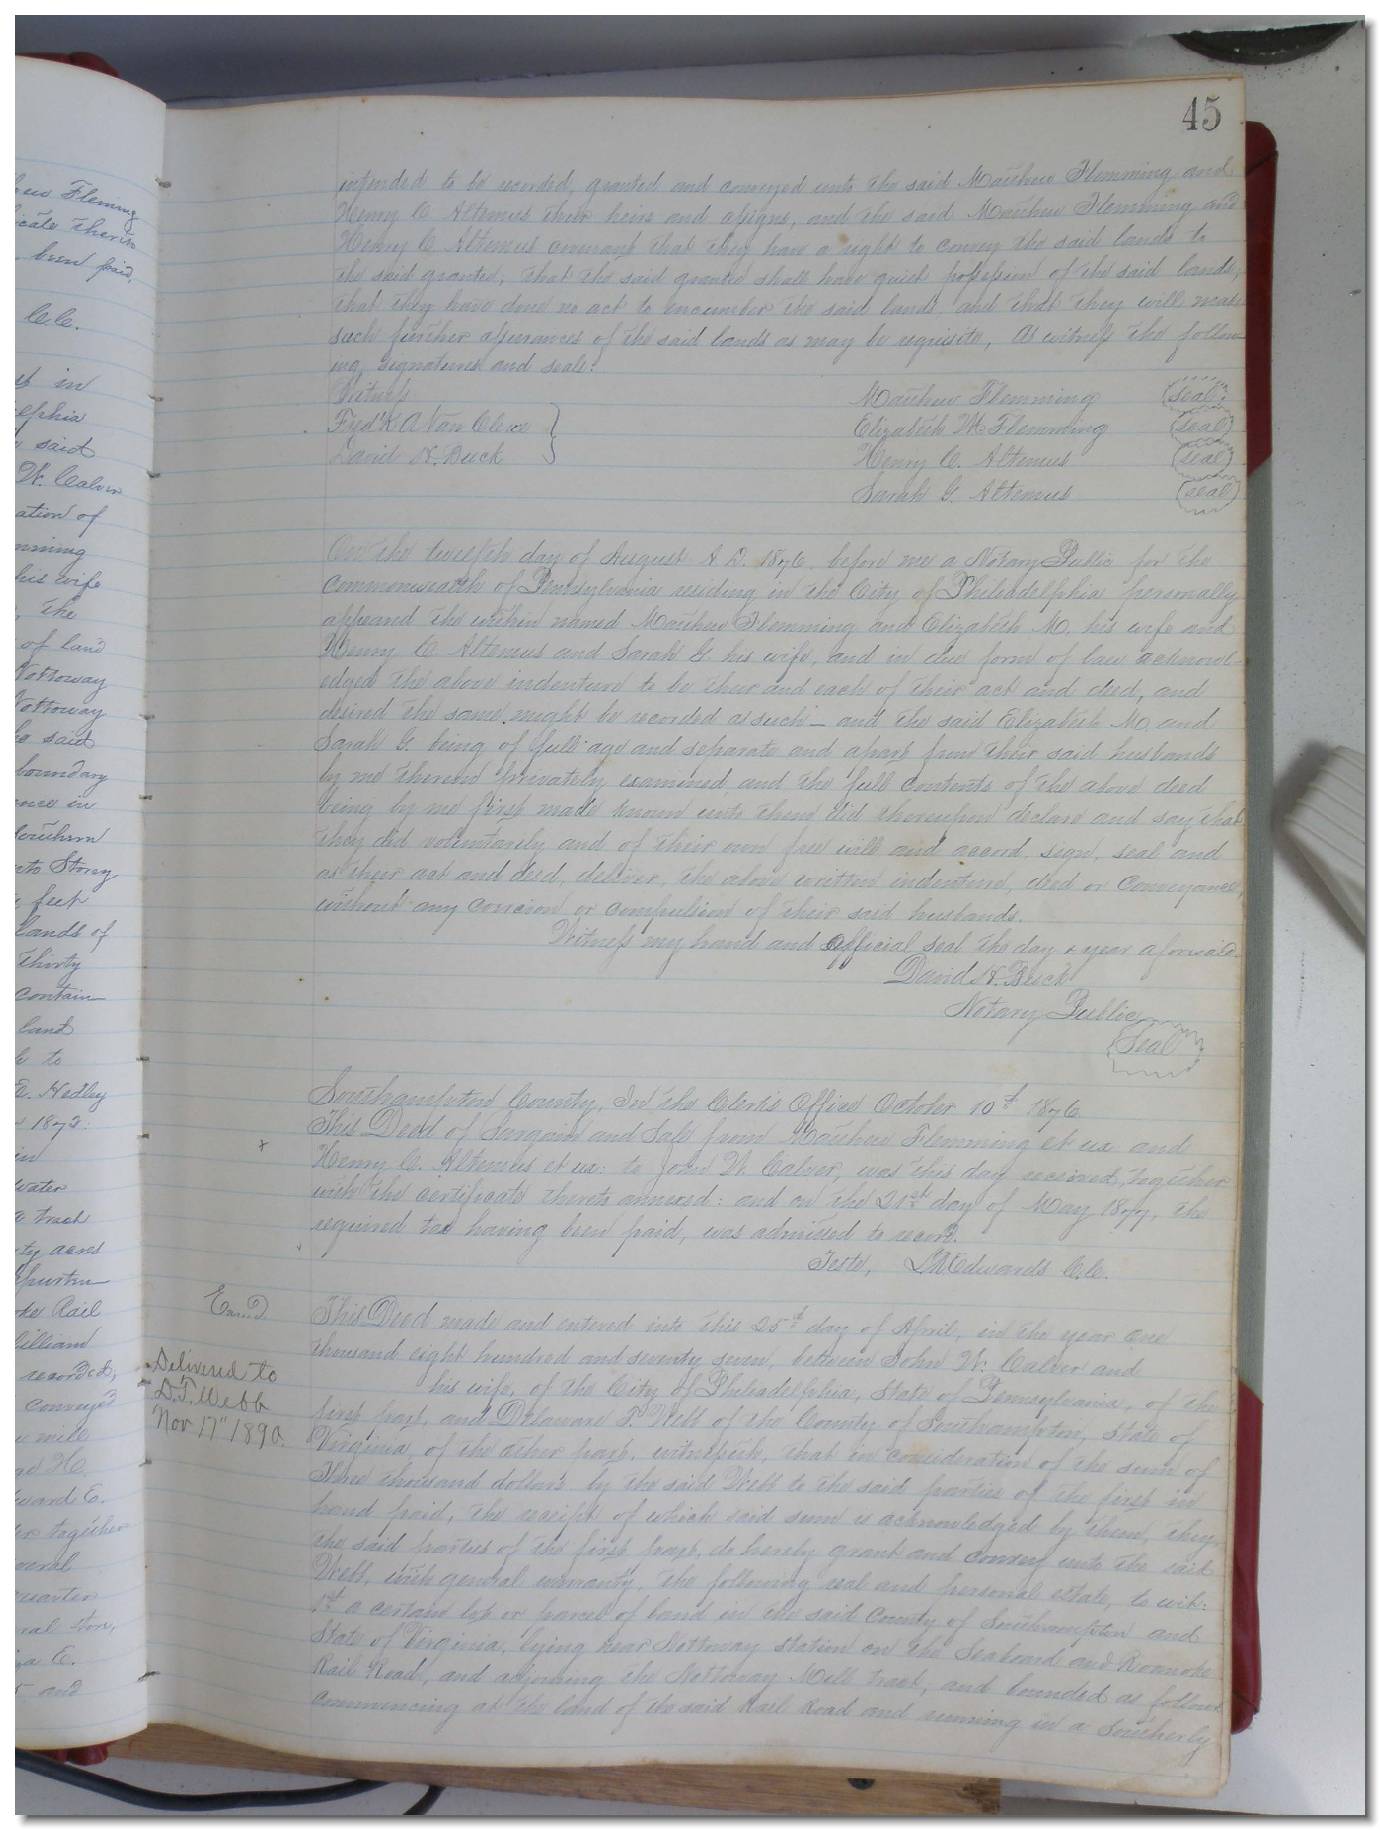 45
intended to be recorded, granted and conveyed unto the said Matthew Flemming and
Henry C. Altemus their heirs and assigns, and the said Matthew Flemming and
Henry C. Altemus covenant that they have a right to convey the said lands to
the said grantee; that the said grantee shall have quiet possession of the said lands;
that they have done no act to encumber the said lands and that they will make
such further assurances of the said lands as may be requisite, As witness the follow
ing signatures and seals:
Witness
Matthew Flemming (seal)
Fred'k A Van Cleve
Elizabeth M Flemming (seal)
David H. Buck
Henry C. Altemus (seal)
Sarah G. Altemus (seal)
On the twelfth day of August A. D. 1876, before me a Notary Public for the
Commonwealth of Pennsylvania residing in the City of Philadelphia personally
appeared the within named Matthew Flemming and Elizabeth M. his wife and
Henry C. Altemus and Sarah G. his wife, and in due form of law acknowl-
edged the above indenture to be their and each of their act and deed, and
desired the same might be recorded as such – and the said Elizabeth M and
Sarah G. being of full age and separate and apart from their said husbands
by me thereon privately examined and the full contents of the above deed
being by me first made known unto them did thereupon declare and say that
they did voluntarily and of their own free will and accord, sign, seal and
as their act and deed, deliver, the above written indenture, deed or Conveyance,
without any coercion or compulsion of their said husbands.
Witness my hand and official seal the day & year aforesaid.
David H. Buck
Notary Public
Seal
Southampton County, In the Clerk's Office October 10th 1876
This Deed of bargain and sale from Matthew Flemming et ux and
Henry C. Altemus et ux: to John W. Calver, was this day received, together
with the certificate thereto annexed: and on the 21st day of May 1877, the
required tax having been paid, was admitted to record.
Teste, L R Edwards C.C.
Exam'd
This Deed made and entered into this 25th day of April, in the year one
thousand eight hundred and seventy seven, between John W. Calver and
his wife, of the City of Philadelphia, State of Pennsylvania, of the
first part, and Delaware T. Webb of the County of Southampton, State of
Virginia, of the other part, witnesseth, that in consideration of the sum of
Three thousand dollars by the said Webb to the said parties of the first in
hand paid, the receipt of which said sum is acknowledged by them, they,
the said parties of the first part, do hereby grant and convey unto the said
Webb, with general warranty, the following real and personal estate, to wit:
1st a certain lot or parcel of land in the said County of Southampton and
State of Virginia, lying near Nottoway Station on the Seaboard and Roanoke
Rail Road, and adjoining the Nottoway Mill tract, and bounded as follows
Commencing at the land of the said Rail Road and running in a Southerly
Delivered to
D.T. Webb
Nov 17" 1890.
Fleming
icate thereto
been paid,
C.C.
in
elphia
said
W. Calver
ation of
mming
his wife
the
of land
Nottoway
Nottoway
he said
boundary
ence in
Southern
nto Stony
feet
lands of
thirty
contain–
land
to
E. Hedley
1873:
in
water
a tract
ty acres
oke Rail
William
recorded,
conveyed
mill
ward E.
together
veral
quarter
E.
and